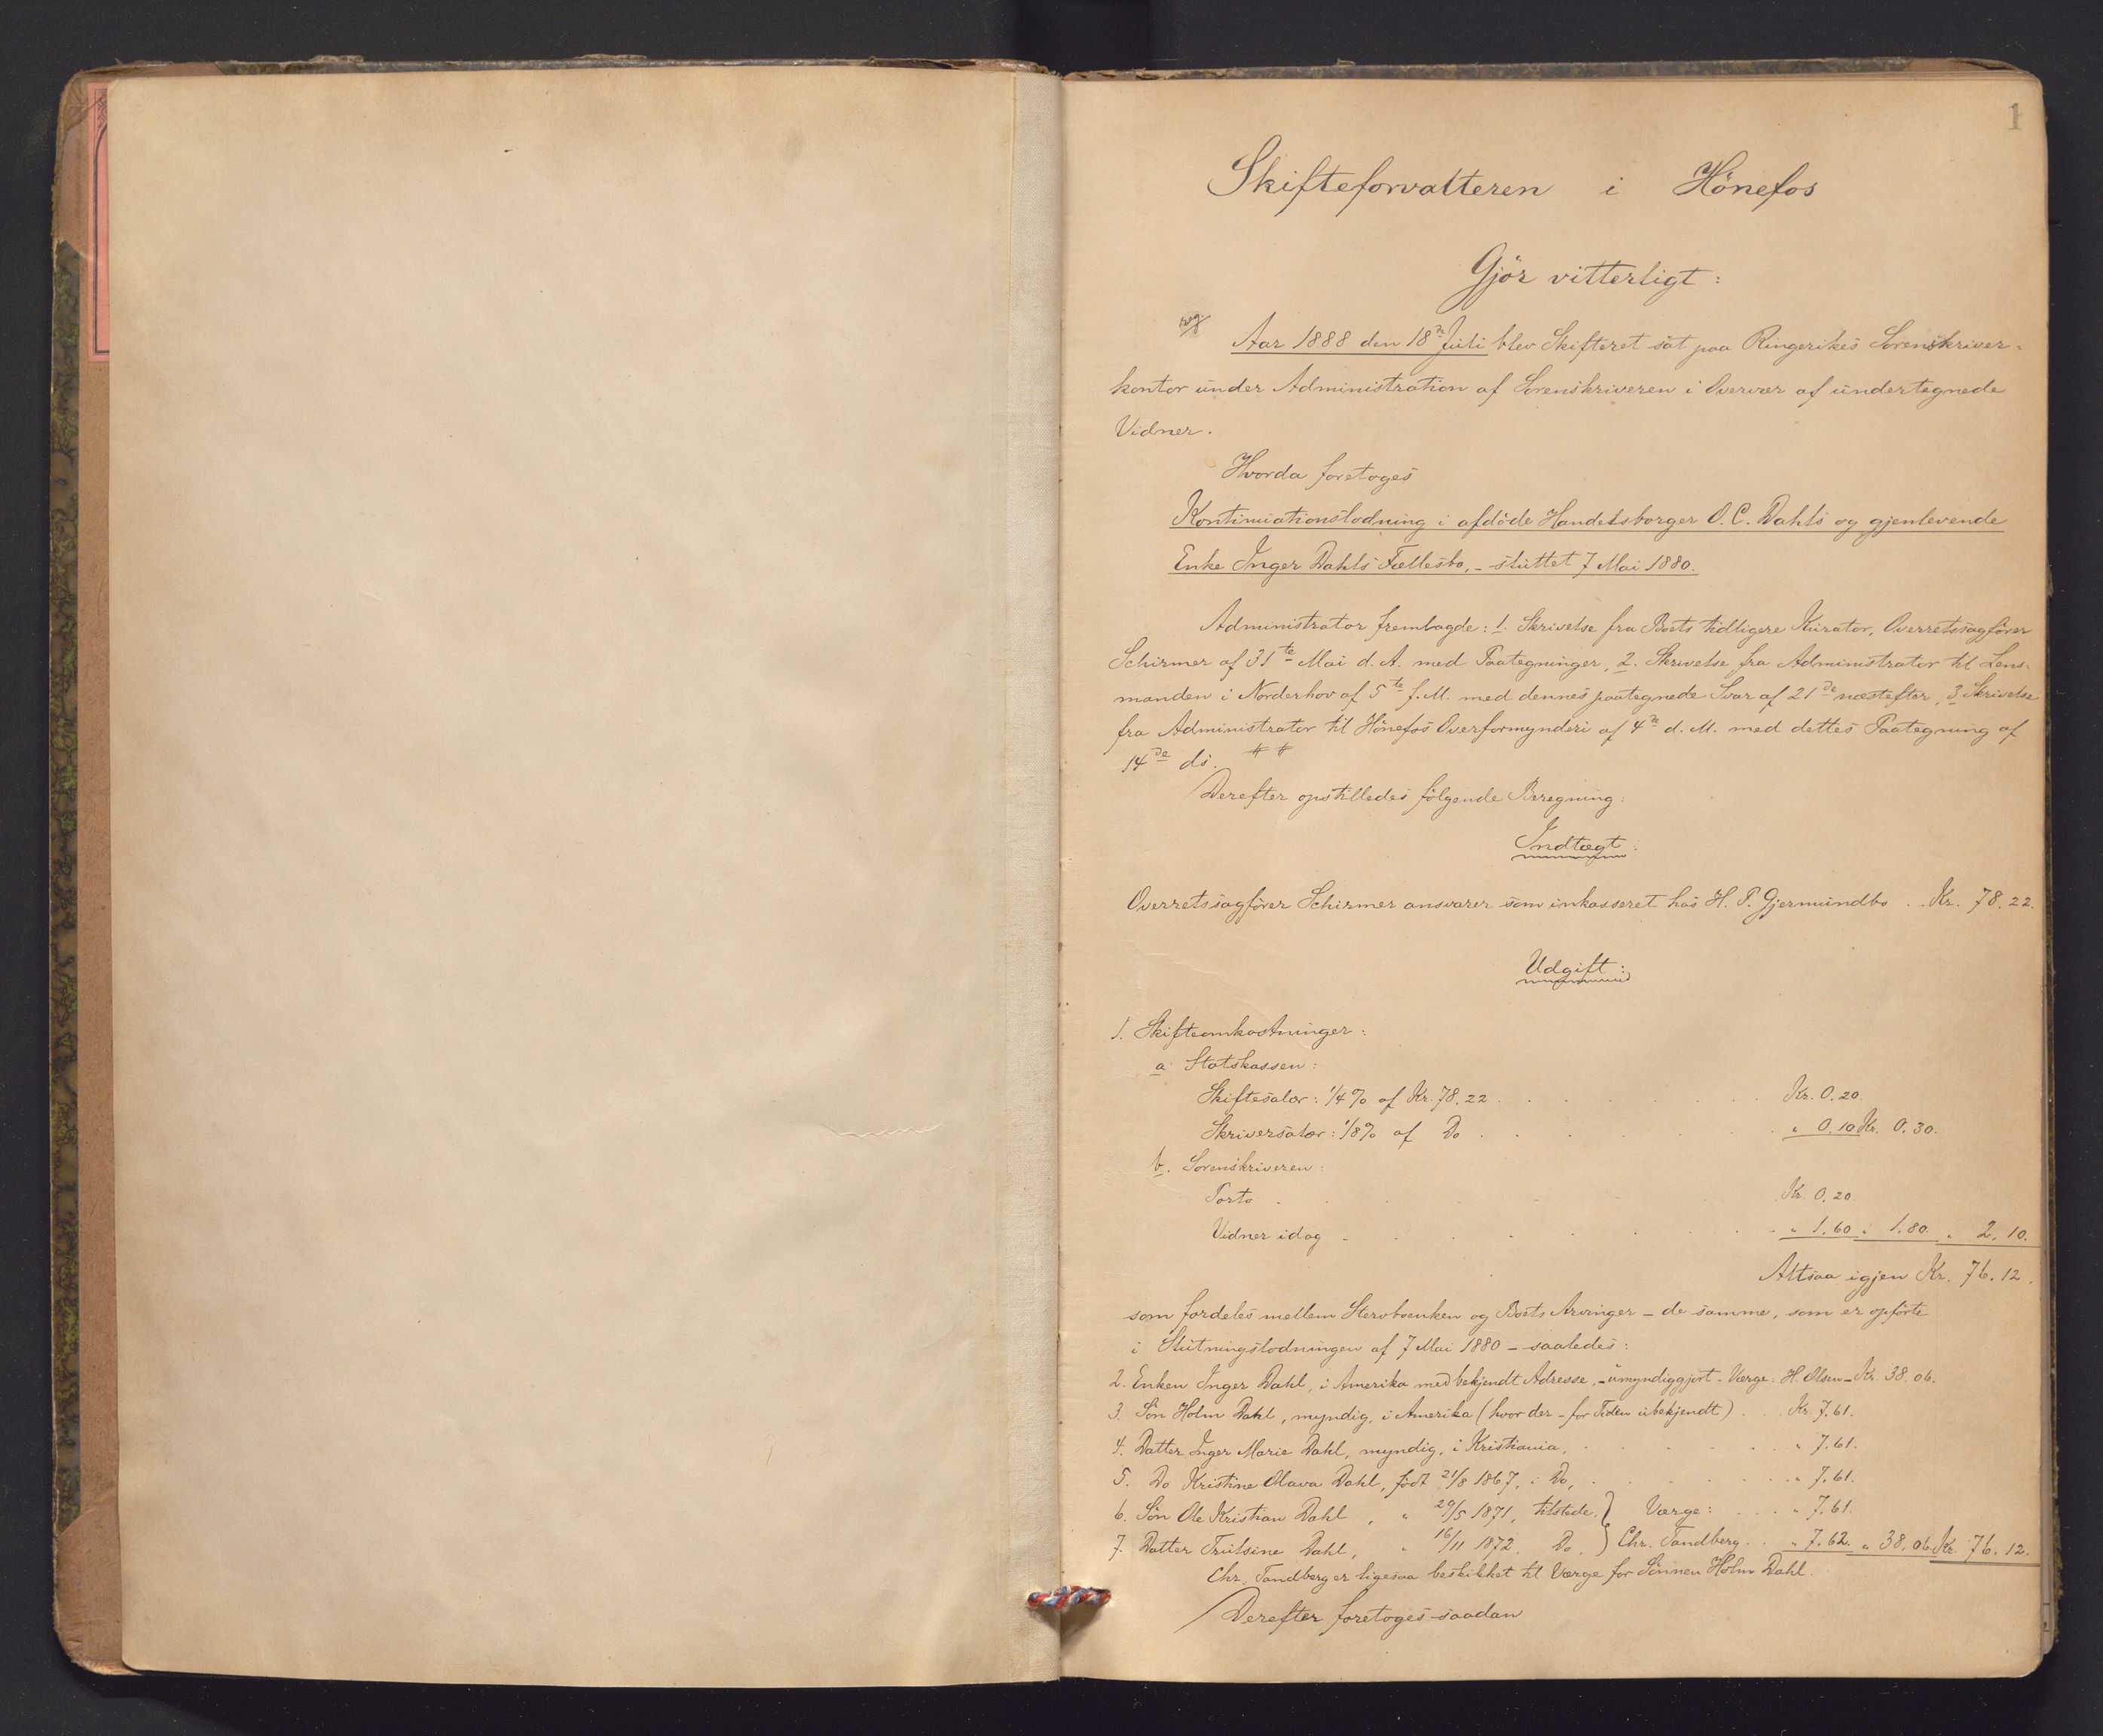 1
Skifteforvalteren i Hönefos
Gjör vitterligt:
Aar 1888 den 18de Juli blev Skifteret sat paa Ringerikes Sorenskriver-
kontor under Administration af Sorenskriveren i Overvær af undertegnede
Vidner.
Hvorda foretoges
Kontinuationslodning i afdöde Handelsborger O. C. Dahls og gjenlevende
Enke Inger Dahls Fællesbo, - sluttet 7 Mai 1880.
Administrator fremlagde: 1. Skrivelse fra Boets tidligere Kurator, Overretssagförer
Schirmer af 31te Mai d. A. med Paategninger, 2. Skrivelse fra Administrator til Lens-
manden i Norderhov af 5te f. M. med dennes paategnede Svar af 21de næstefter, 3 Skrivelse
fra Administrator til Hönefos Overformynderi af 4de d. M. med dettes Paategning af
14de ds. # #
Derefter opstilledes fölgende Beregning:
Indtægt:
Overretssagförer Schirmer ansvarer som inkasseret hos H. P. Gjermundbo . . Kr. 78.22.
Udgift:
1. Skifteomkostninger:
a Statskassen:
Skiftesalær: 1/4 % af Kr. 78.22 . . . . Kr. 0.20.
Skriversalær: 1/8 % af Do . . . . " 0.10 Kr. 0.30.
b. Sorenskriveren:
Porto . . . . Kr. 0.20
Vidner idag . . . . " 1.60 " 1.80 " 2.10.
Altsaa igjen Kr. 76.12.
som fordeles mellem Stervboenken og Boets Arvinger - de samme, som er opförte
i Slutningslodningen af 7 Mai 1880 - saaledes:
2. Enken Inger Dahl, i Amerika med bekjendt Adresse, - umyndiggjort - Værge: H. Olsen - Kr. 38.06.
3. Sön Holm Dahl, myndig, i Amerika (hvor der - for Tiden ubekjendt) . . Kr. 7.61.
4. Datter Inger Marie Dahl, myndig, i Kristiania, . . . . " 7.61.
5. Do Kristine Olava Dahl, födt 21/8 1867, i Do, . . . . " 7.61.
6. Sön Ole Kristian Dahl, " 29/5 1871, tilstede, } Værge: . . . . " 7.61.
7. Datter Trulsine Dahl, " 16/11 1872, Do. } Chr. Tandberg . . " 7.62. " 38.06 Kr. 76.12.
Chr. Tandberg er ligesaa beskikket til Værge for Sönnen Holm Dahl.
Derefter foretoges saadan